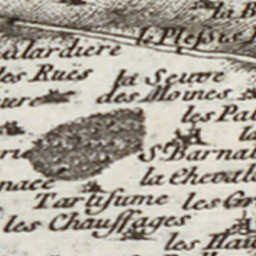 la B
le Plessis
alardiere
les Rues
la Seuve
des Moines
iere
les Pal
la
rie
St Barnal
nace
la Cheval
Tartifume
les Gr
les Chauffages
les Hau